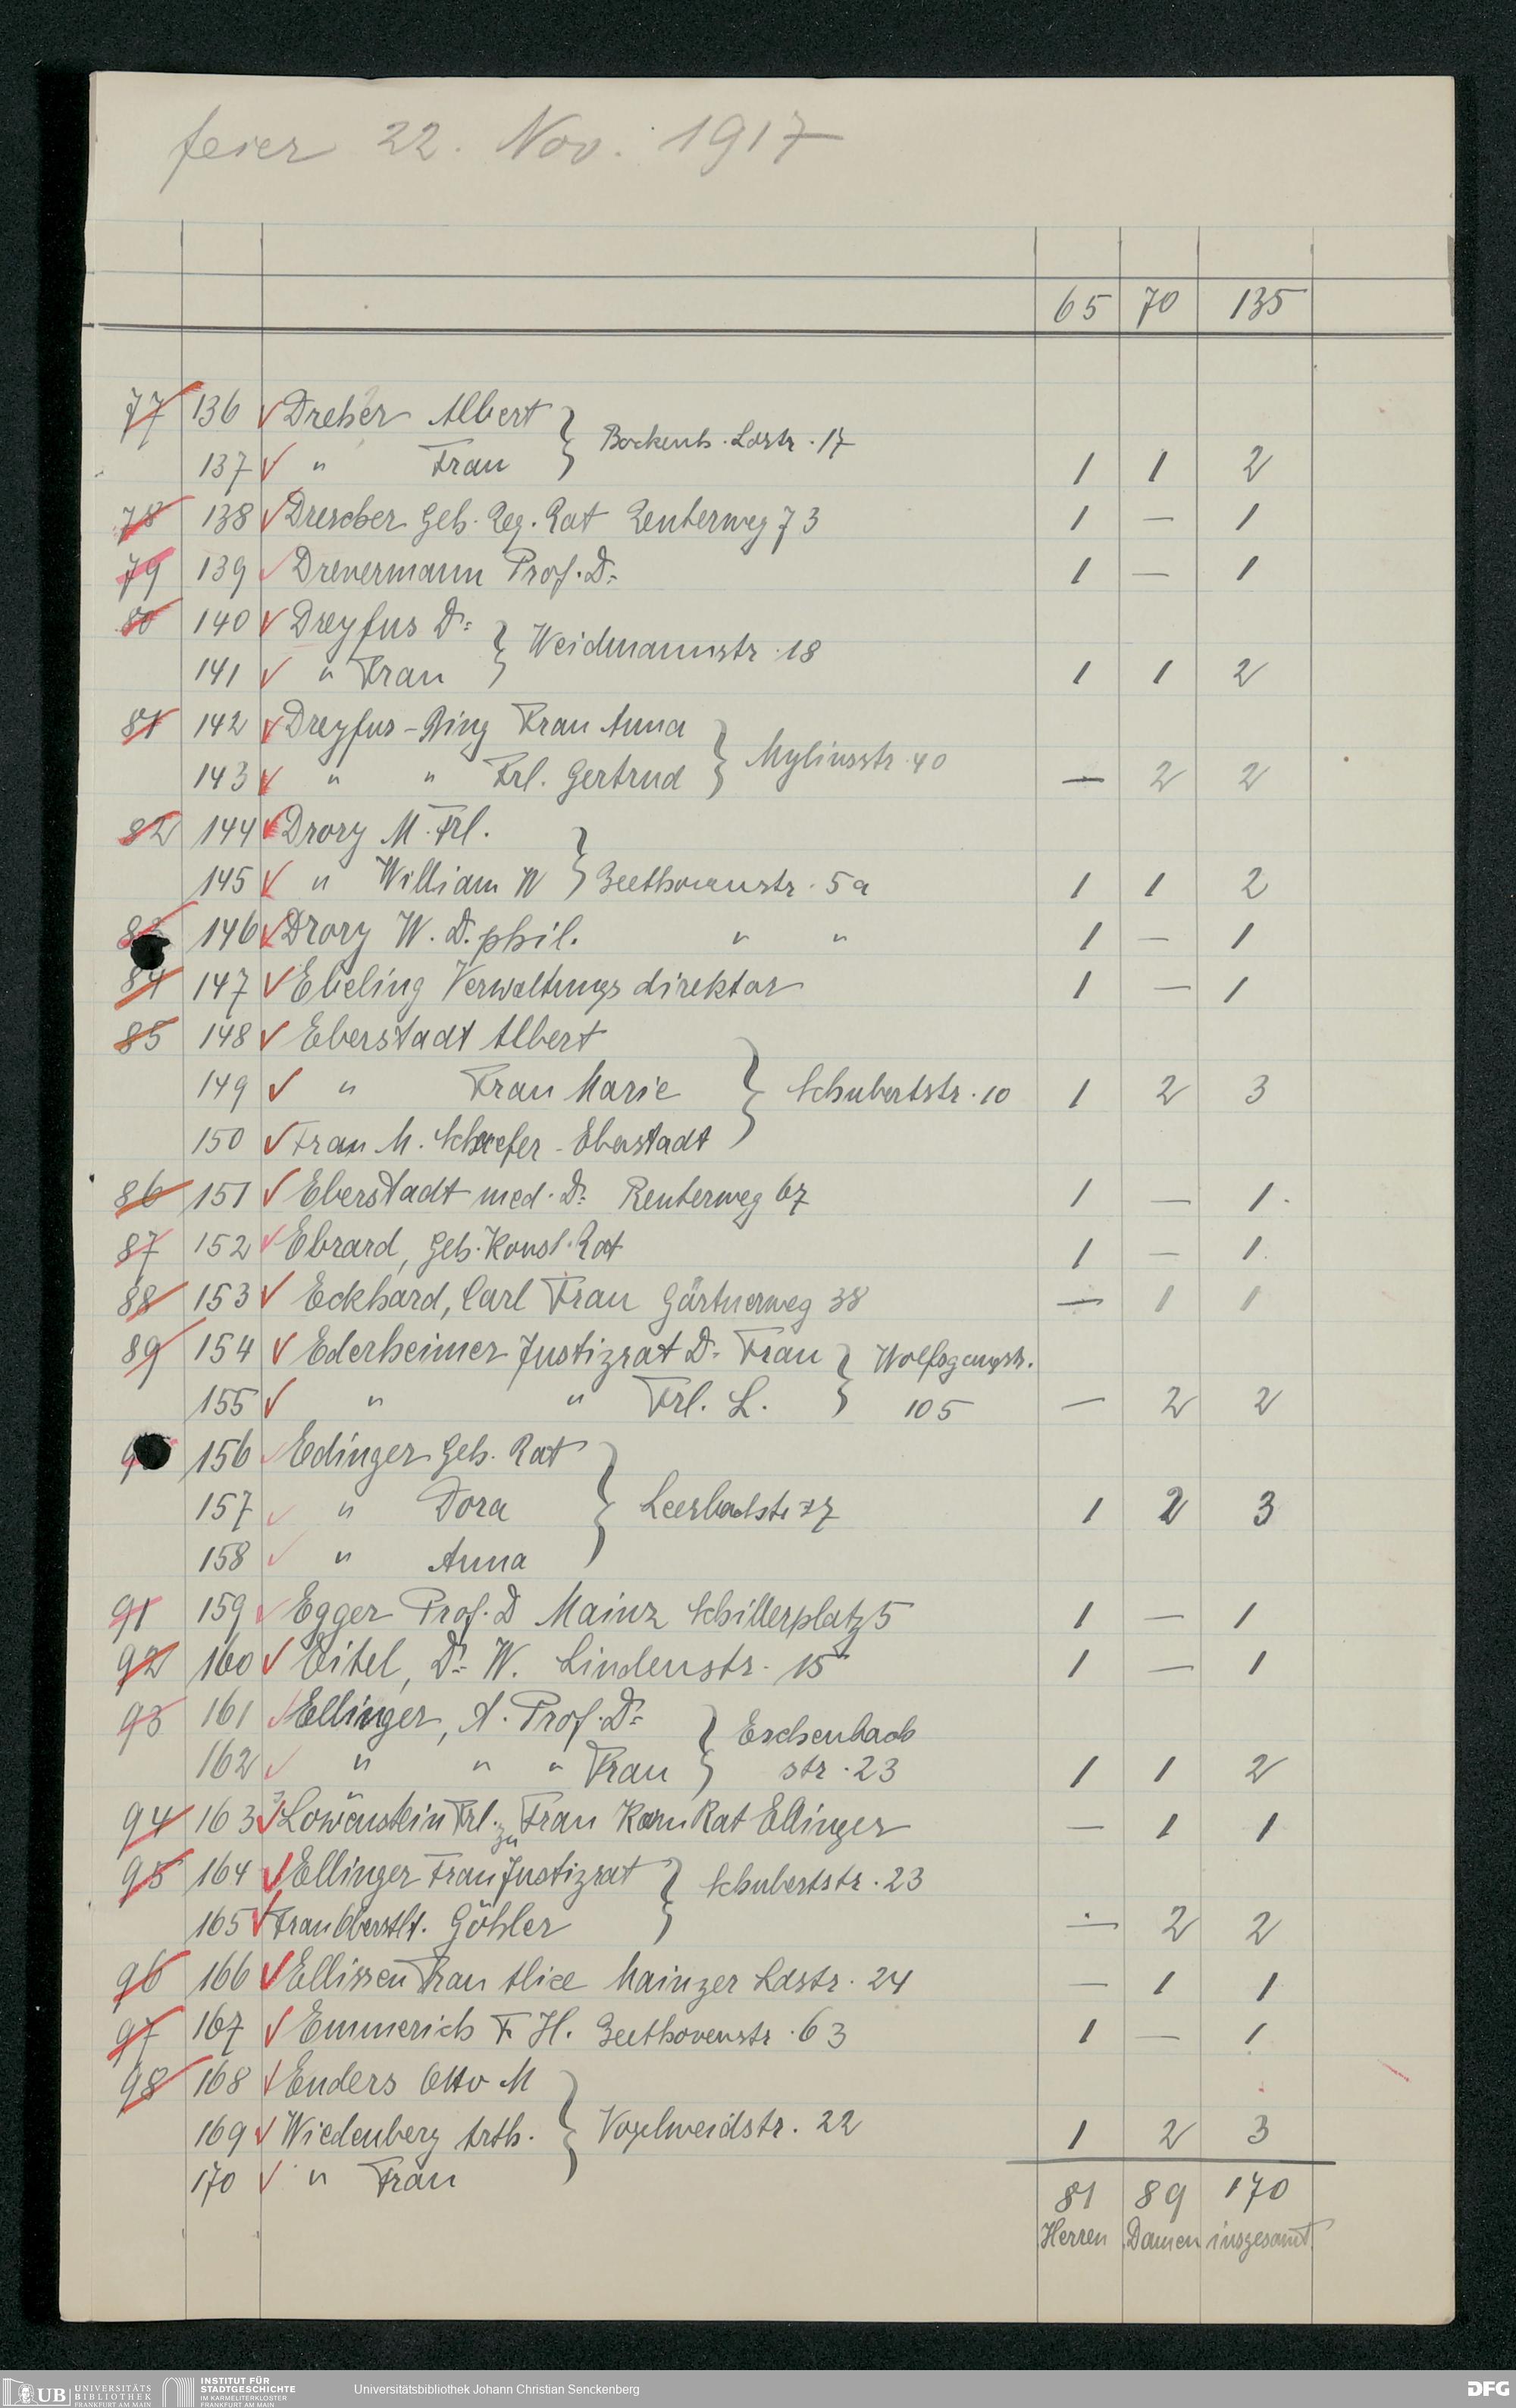 feier 22. Nov. 1917
65 70 135
77 136 Dreher Albert } Bockenh. Ldstr. 17
137 " Frau 1 1 2
78 138 Drescher Geh. Reg. Rat Reuterweg 73 1 — 1
79 139 Drevermann Prof. Dr. 1 — 1
80 140 Dreyfus Dr. } Weidmannstr. 18
141 " Frau 1 1 2
81 142 Dreyfus-Bing Frau Anna } Myliusstr. 40
143 " " Frl. Gertrud — 2 2
82 144 Drory M. Frl.
145 " William W } Beethovenstr. 5a 1 1 2
83 146 Drory W. D. phil. " " 1 — 1
84 147 Ebeling Verwaltungsdirektor 1 — 1
85 148 Eberstadt Albert
149 " Frau Marie } Schubertstr. 10 1 2 3
150 Frau M. Schaefer-Eberstadt
86 151 Eberstadt med. Dr. Reuterweg 67 1 — 1.
87 152 Ebrard, Geh. Konsl. Rat 1 — 1.
88 153 Eckhard, Carl Frau Gärtnerweg 38 — 1 1
89 154 Ederheimer Justizrat Dr. Frau } Wolfsgangstr.
155 " " Frl. L. 105 — 2 2
156 Edinger Geh. Rat
157 " Dora } Leerbachstr. 27 1 2 3
158 " Anna
91 159 Egger Prof. D Mainz Schillerplatz 5 1 — 1
92 160 Eitel, Dr. W. Lindenstr. 15 1 — 1
93 161 Ellinger, A. Prof. Dr. } Eschenbach
162 " " " Frau str. 23 1 1 2
94 163 Löwenstein Frl. zu Frau Kom Rat Ellinger — 1 1
95 164 Ellinger Frau Justizrat } Schubertstr. 23
165 Frau Oberstlt. Göhler — 2 2
96 166 Ellissen Frau Alice Mainzer Ldstr. 24 — 1 1
97 167 Emmerich F. H. Beethovenstr. 63 1 — 1
98 168 Enders Otto M
169 Wiedenberg Arth. } Vogelweidstr. 22 1 2 3
170 " Frau
81 89 170
Herren Damen insgesamt
UB UNIVERSITÄTS
BIBLIOTHEK
FRANKFURT AM MAIN
INSTITUT FÜR
STADTGESCHICHTE
IM KARMELITERKLOSTER
FRANKFURT AM MAIN
Universitätsbibliothek Johann Christian Senckenberg
DFG